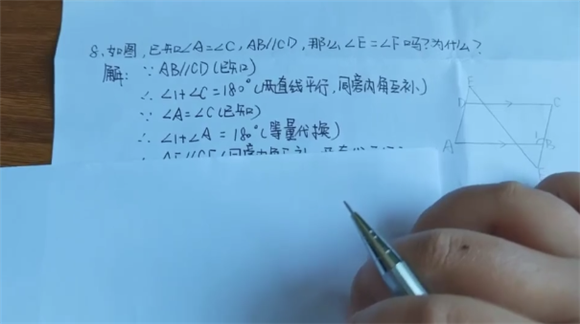 8.如图，已知∠A=∠C，AB//CD，那么∠E=∠F吗?为什么?
解：∵ AB//CD(已知)
∴ ∠1+∠C=180°(两直线平行，同旁内角互补)
∵ ∠A=∠C(已知)
∴ ∠1+∠A=180°(等量代换)
E
C
A